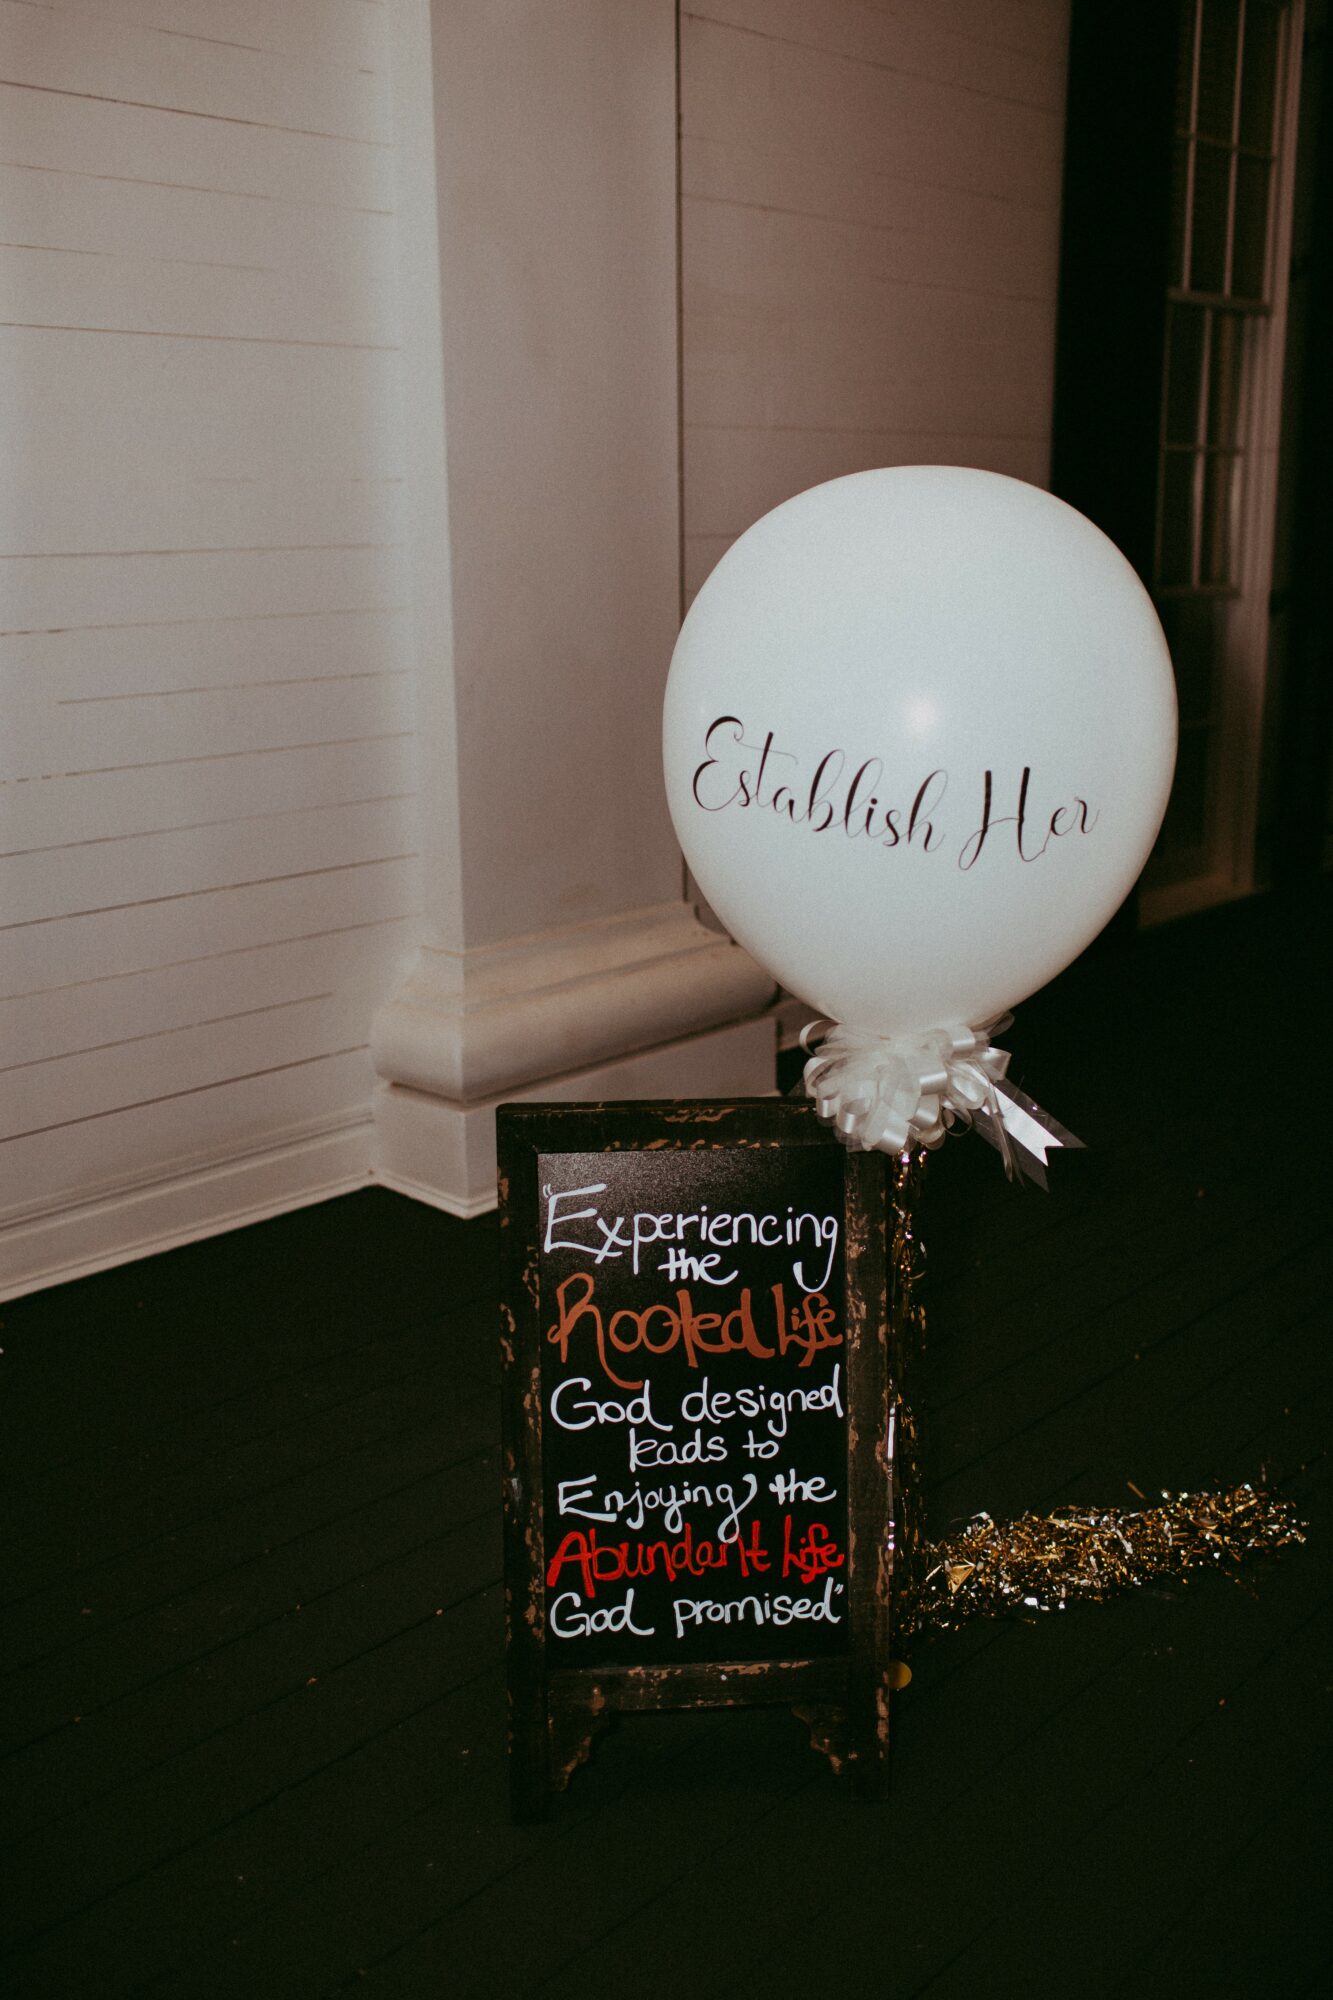 Establish Her
"Experiencing
the
Rooted Life
God designed
leads to
Enjoying the
Abundant Life
God promised"